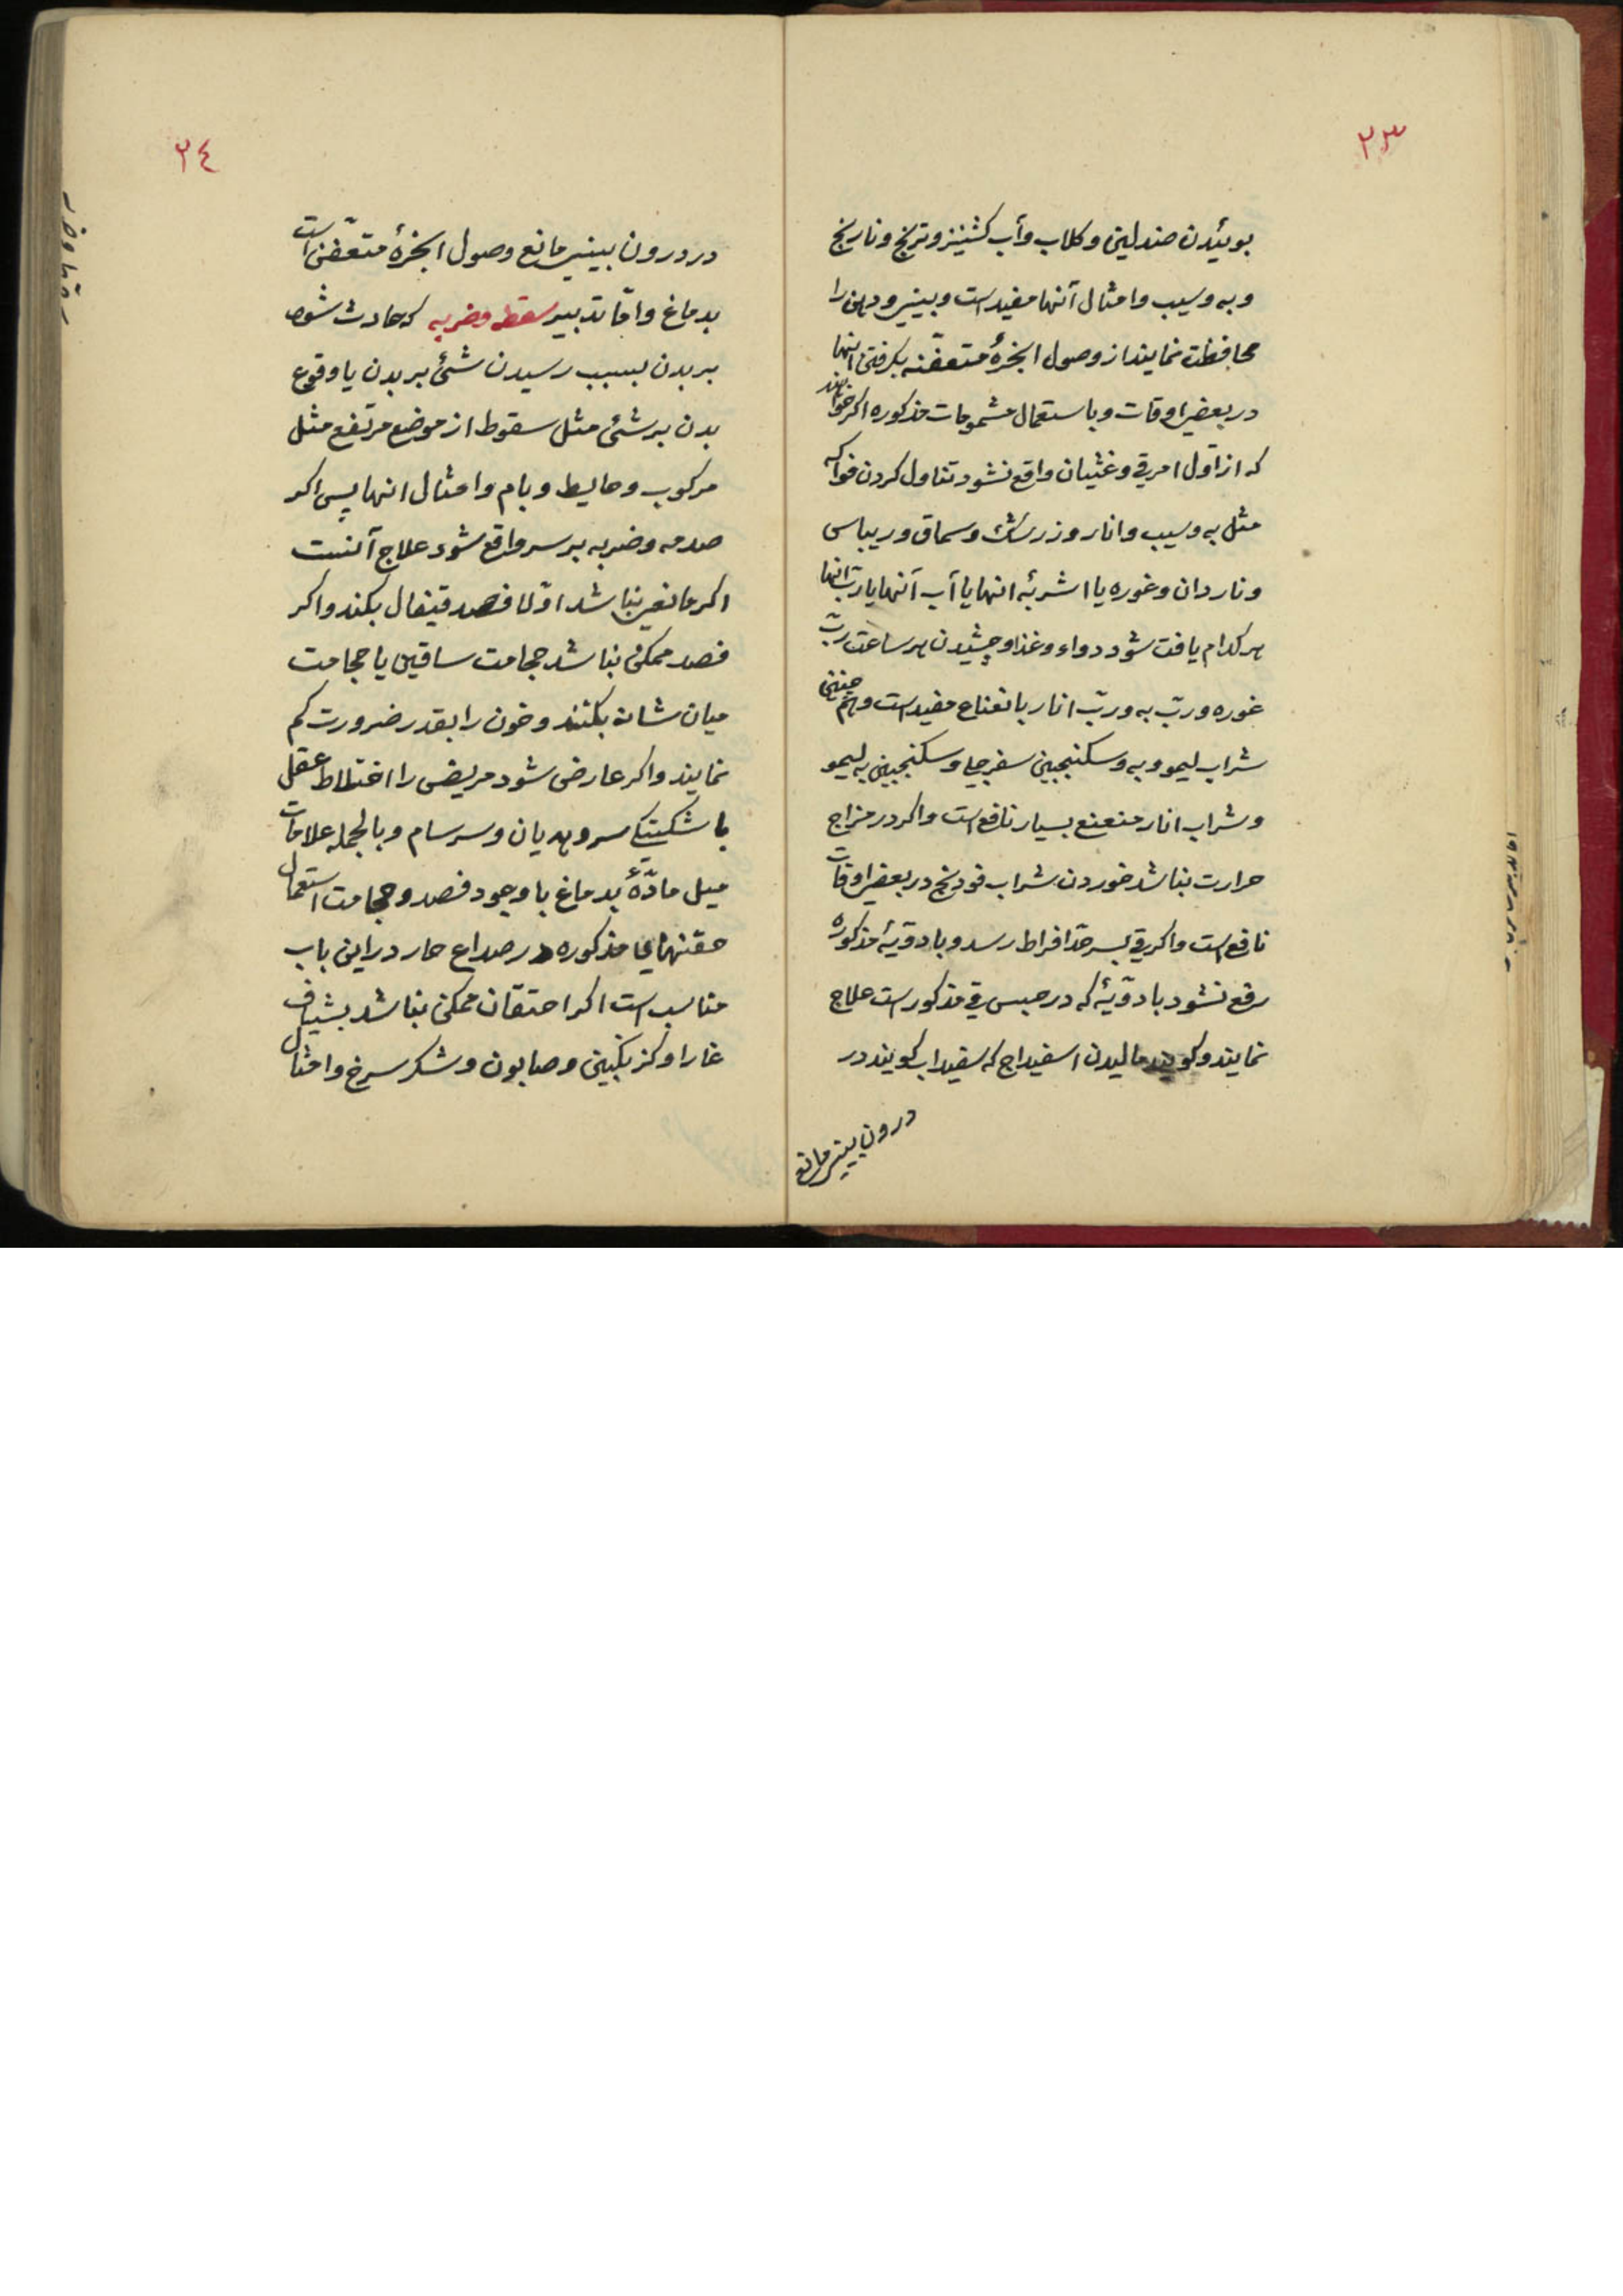 ٢٣
بوئیدن صندلین و کلاب و آب کشنیز و ترنج و نارنج
و به و سیب و امثال آنها مفید است و بینی و دهن را
محافظت نمایند از وصول ابخرهٔ متعفّنه بکرفتن اینها
در بعضی اوقات و باستعمال مشمومات مذکوره اکر خواهند
که از اوّل امر قی و غثیان واقع نشود تناول کردن فواکه
مثل به و سیب و انار و زرشک و سماق و ریباس
و ناردان و غوره یا اشربهٔ انها یا آب آنها یا ربّ انها
هر کدام یافت شود دواء و غذا و چشیدن هر ساعت ربّ
غوره و ربّ به و ربّ انار با نعناع مفید است و هم چنین
شراب لیمو و به و سکنجبین سفرجلی و سکنجبین به لیمو
و شراب انار منعنع بسیار نافع است و اکر در مزاج
حرارت نباشد خوردن شراب فودنج در بعضی اوقات
نافع است و اکر قی بسر حدّ افراط رسد و بادویهٔ مذکوره
رفع نشود بادویهٔ که در حبس قی مذکور است علاج
نمایند و کویند مالیدن اسفیداج که سفیداب کویند در
درون بینی مانع
٢٤
در درون بینی مانع وصول ابخرهٔ متعفّن است
بدماغ و امّا تدبیر سقطه و ضربه که حادث شود
بر بدن بسبب رسیدن شئ بر بدن یا وقوع
بدن بر شئ مثل سقوط از موضع مرتفع مثل
مرکوب و حایط و بام و امثال انها پس اکر
صدمه و ضربه بر سر واقع شود علاج آنست
اکر مانعی نباشد اوّلا فصد قیفال بکند و اکر
فصد ممکن نباشد حجامت ساقین یا حجامت
میان شانه بکنند و خون را بقدر ضرورت کم
نمایند و اکر عارض شود مریض را اختلاط عقل
با شکستکی سر و هدیان و سرسام و بالجمله علامات
میل مادّهٔ بدماغ با وجود فصد و حجامت استعمال
حقنهای مذکوره در صداع حار در این باب
مناسب است اکر احتقان ممکن نباشد بشیاف
غارا و کزنکبین و صابون و شکر سرخ و امثال